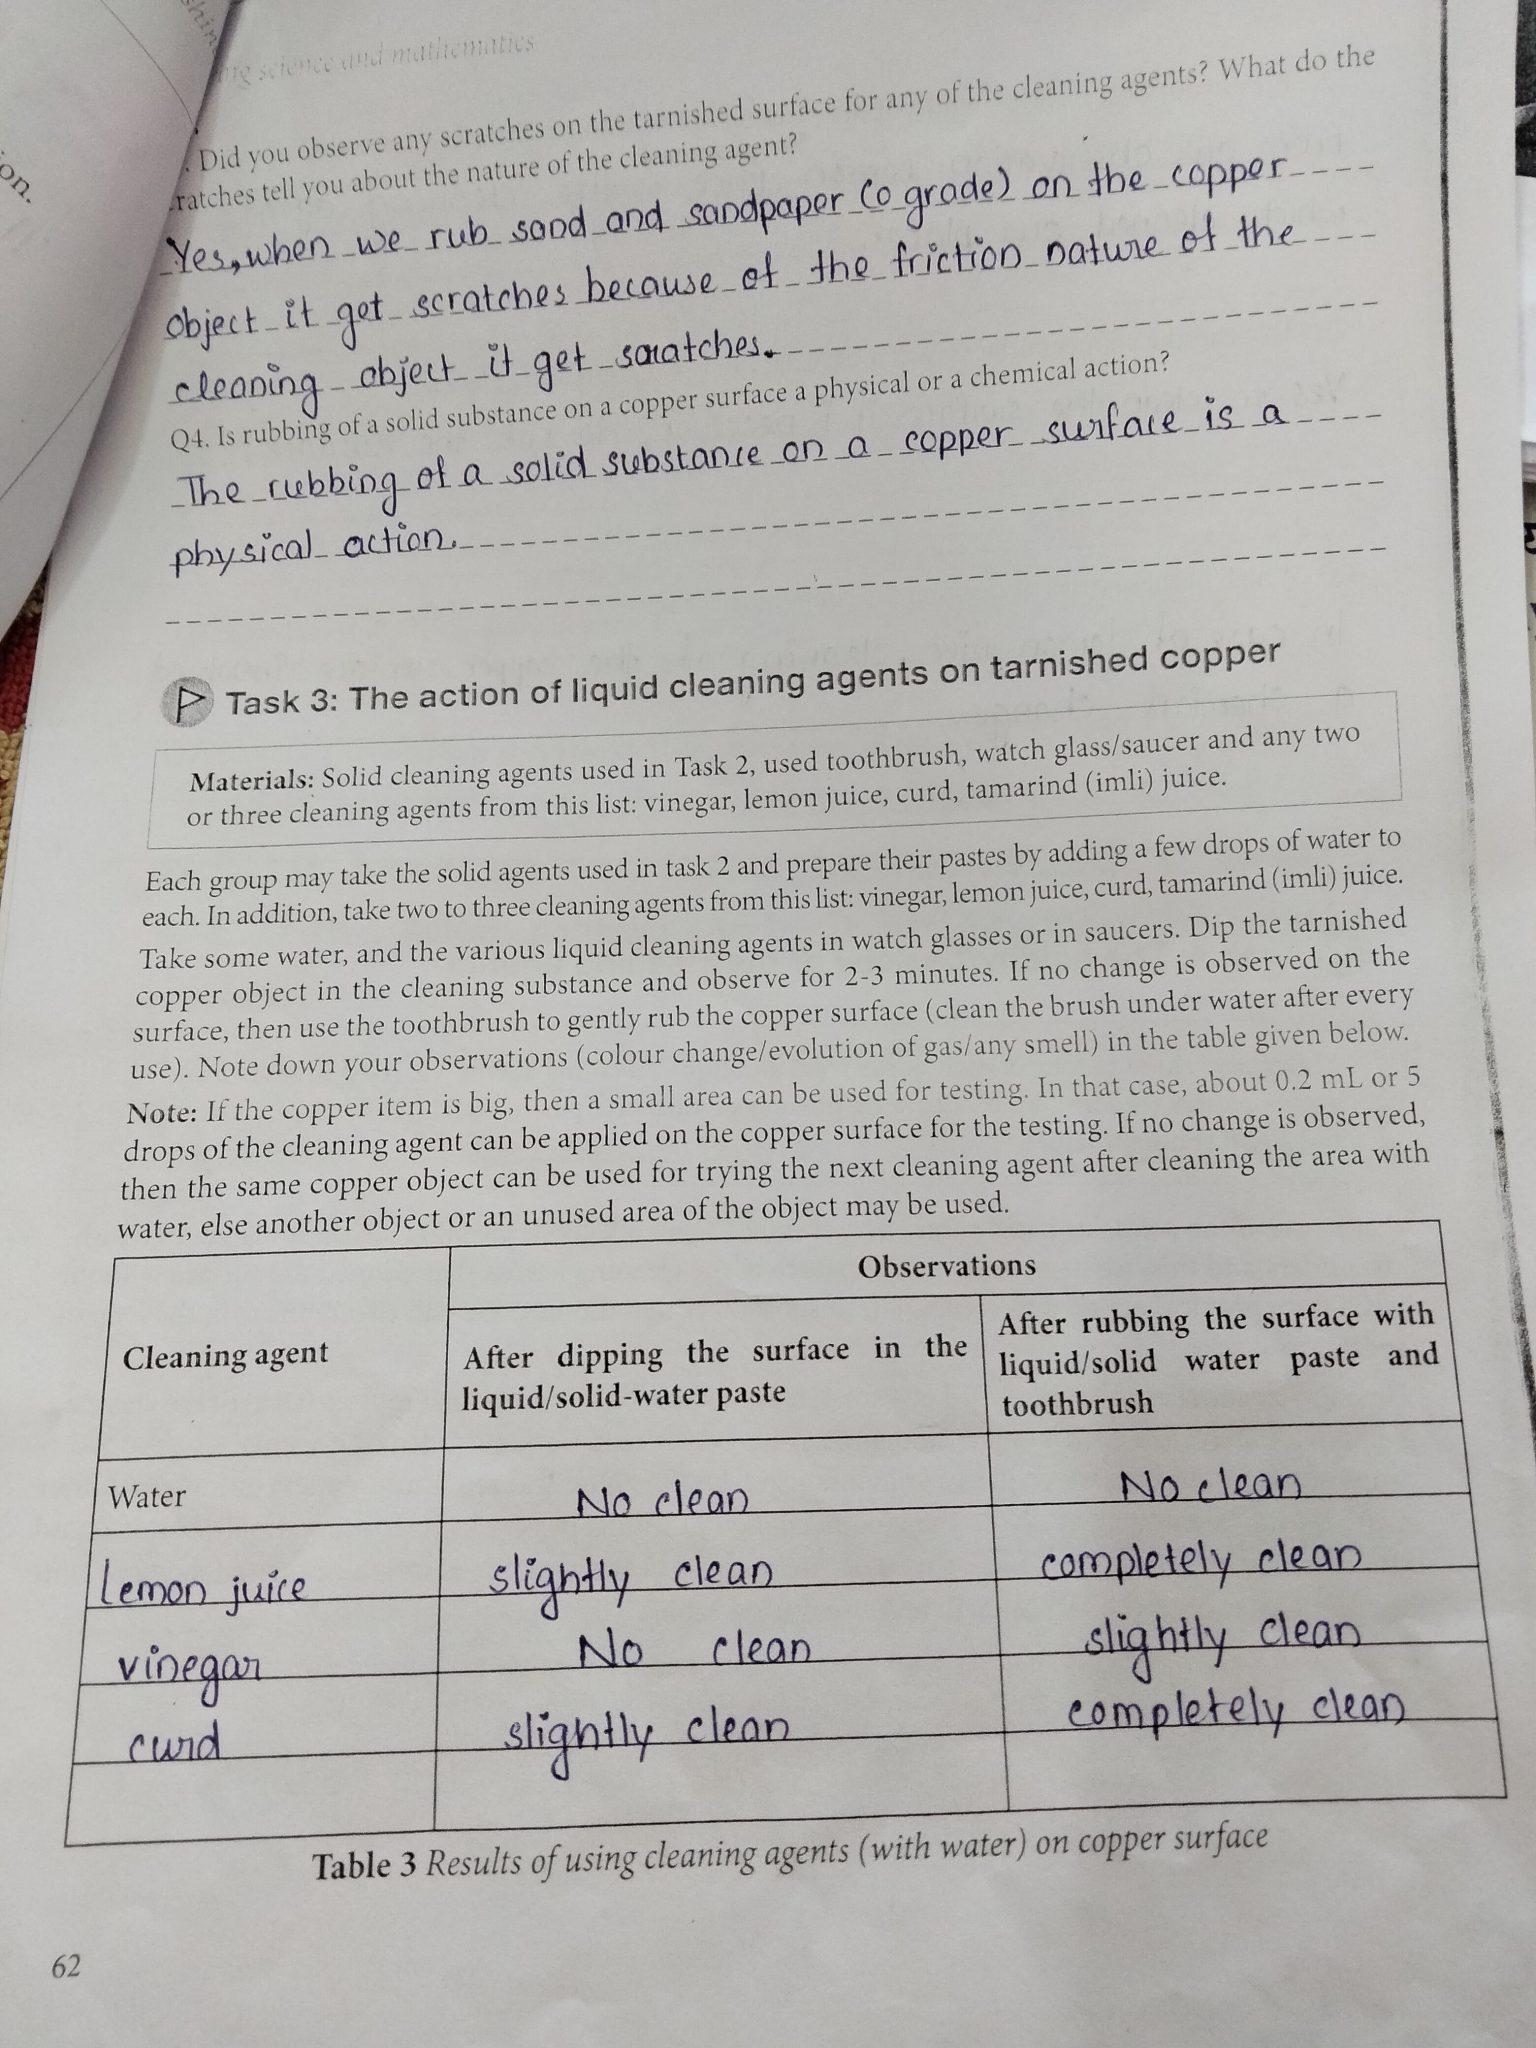 on.
science and mathematics
Did you observe any scratches on the tarnished surface for any of the cleaning agents? What do the
ratches tell you about the nature of the cleaning agent?
Yes, when we rub sand and sandpaper (o grade) on the copper
object it get scratches because of the friction nature of the
cleaning object it get scratches.
Q4. Is rubbing of a solid substance on a copper surface a physical or a chemical action?
The rubbing of a solid substance on a copper surface is a
physical action.
Task 3: The action of liquid cleaning agents on tarnished copper
Materials: Solid cleaning agents used in Task 2, used toothbrush, watch glass/saucer and any two
or three cleaning agents from this list: vinegar, lemon juice, curd, tamarind (imli) juice.
Each group may take the solid agents used in task 2 and prepare their pastes by adding a few drops of water to
each. In addition, take two to three cleaning agents from this list: vinegar, lemon juice, curd, tamarind (imli) juice.
Take some water, and the various liquid cleaning agents in watch glasses or in saucers. Dip the tarnished
copper object in the cleaning substance and observe for 2-3 minutes. If no change is observed on the
surface, then use the toothbrush to gently rub the copper surface (clean the brush under water after every
use). Note down your observations (colour change/evolution of gas/any smell) in the table given below.
Note: If the copper item is big, then a small area can be used for testing. In that case, about 0.2 mL or 5
drops of the cleaning agent can be applied on the copper surface for the testing. If no change is observed,
then the same copper object can be used for trying the next cleaning agent after cleaning the area with
water, else another object or an unused area of the object may be used.
Observations
Cleaning agent
After dipping the surface in the
liquid/solid-water paste
After rubbing the surface with
liquid/solid water paste and
toothbrush
Water No clean No clean
Lemon juice slightly clean completely clean
vinegar No clean slightly clean
curd slightly clean completely clean
Table 3 Results of using cleaning agents (with water) on copper surface
62